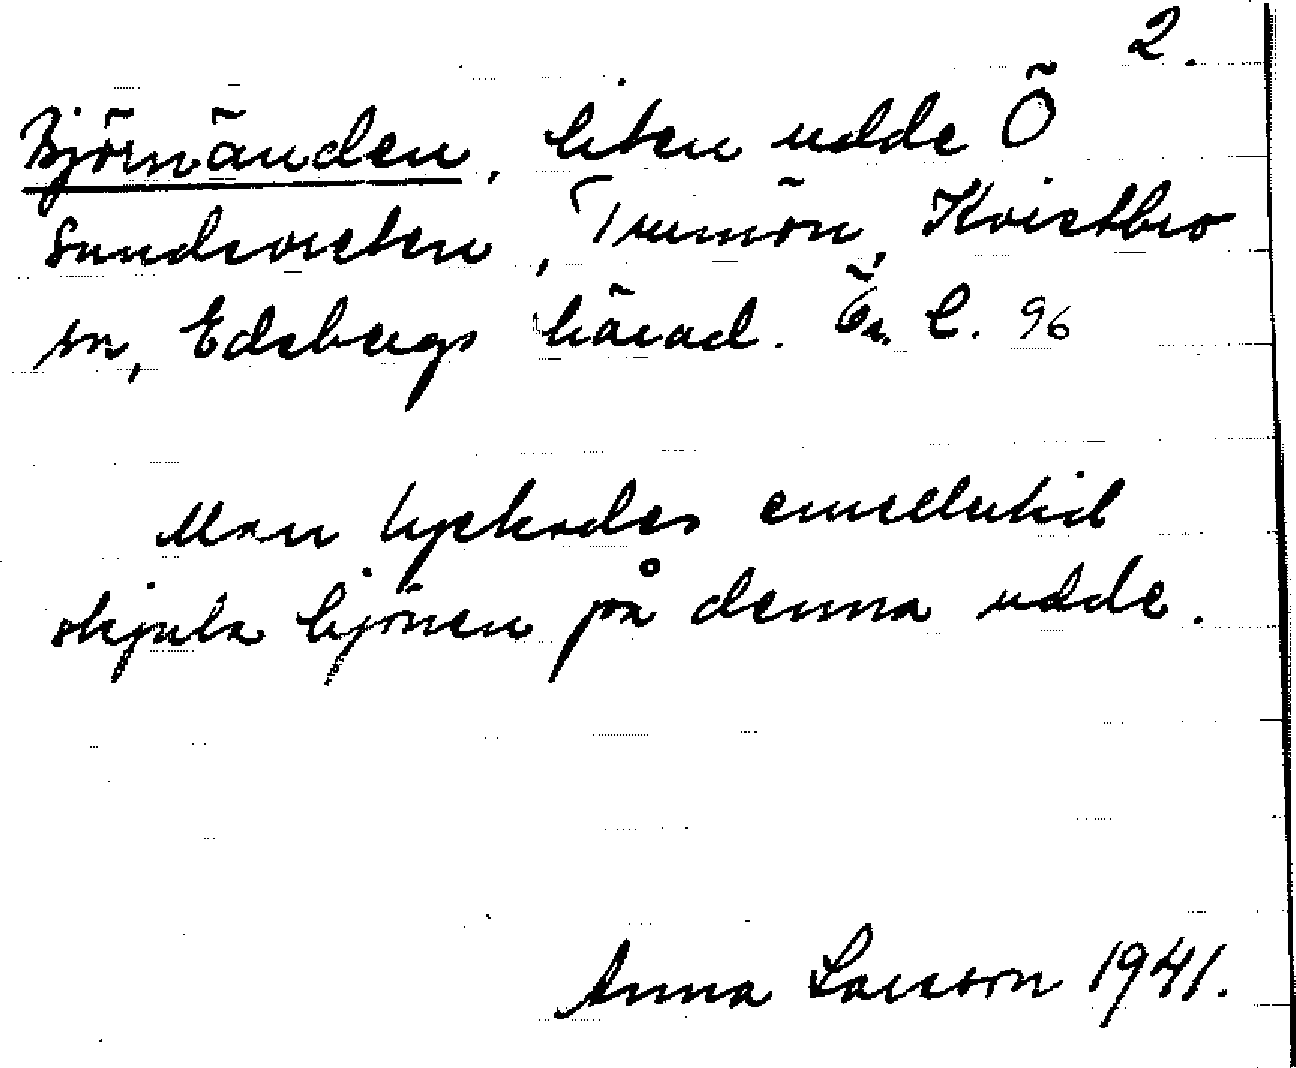 2.
Björnänden, liten udde Ö
Sundsvreten, Trumön, Kvistbro
sn, Edsbergs härad. Ör. l. 96
Man lyckades emellertid
skjuta björnen på denna udde.
Anna Larsson 1941.